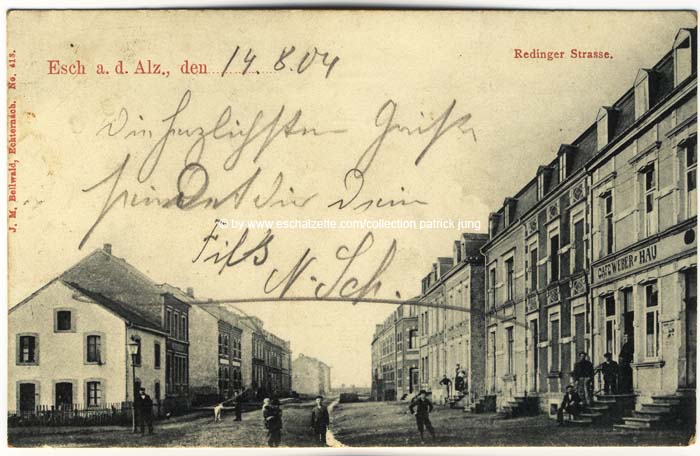 Esch a. d. Alz., den 14.8.04
Redinger Strasse.
J. M. Bellwald, Echternach. No. 413.
Die herzlichsten Grüße
sendet dir Dein
© by www.eschalzette.com/collection patrick jung
Fils
N. Sch.
CAFÉ WEBER-HAU